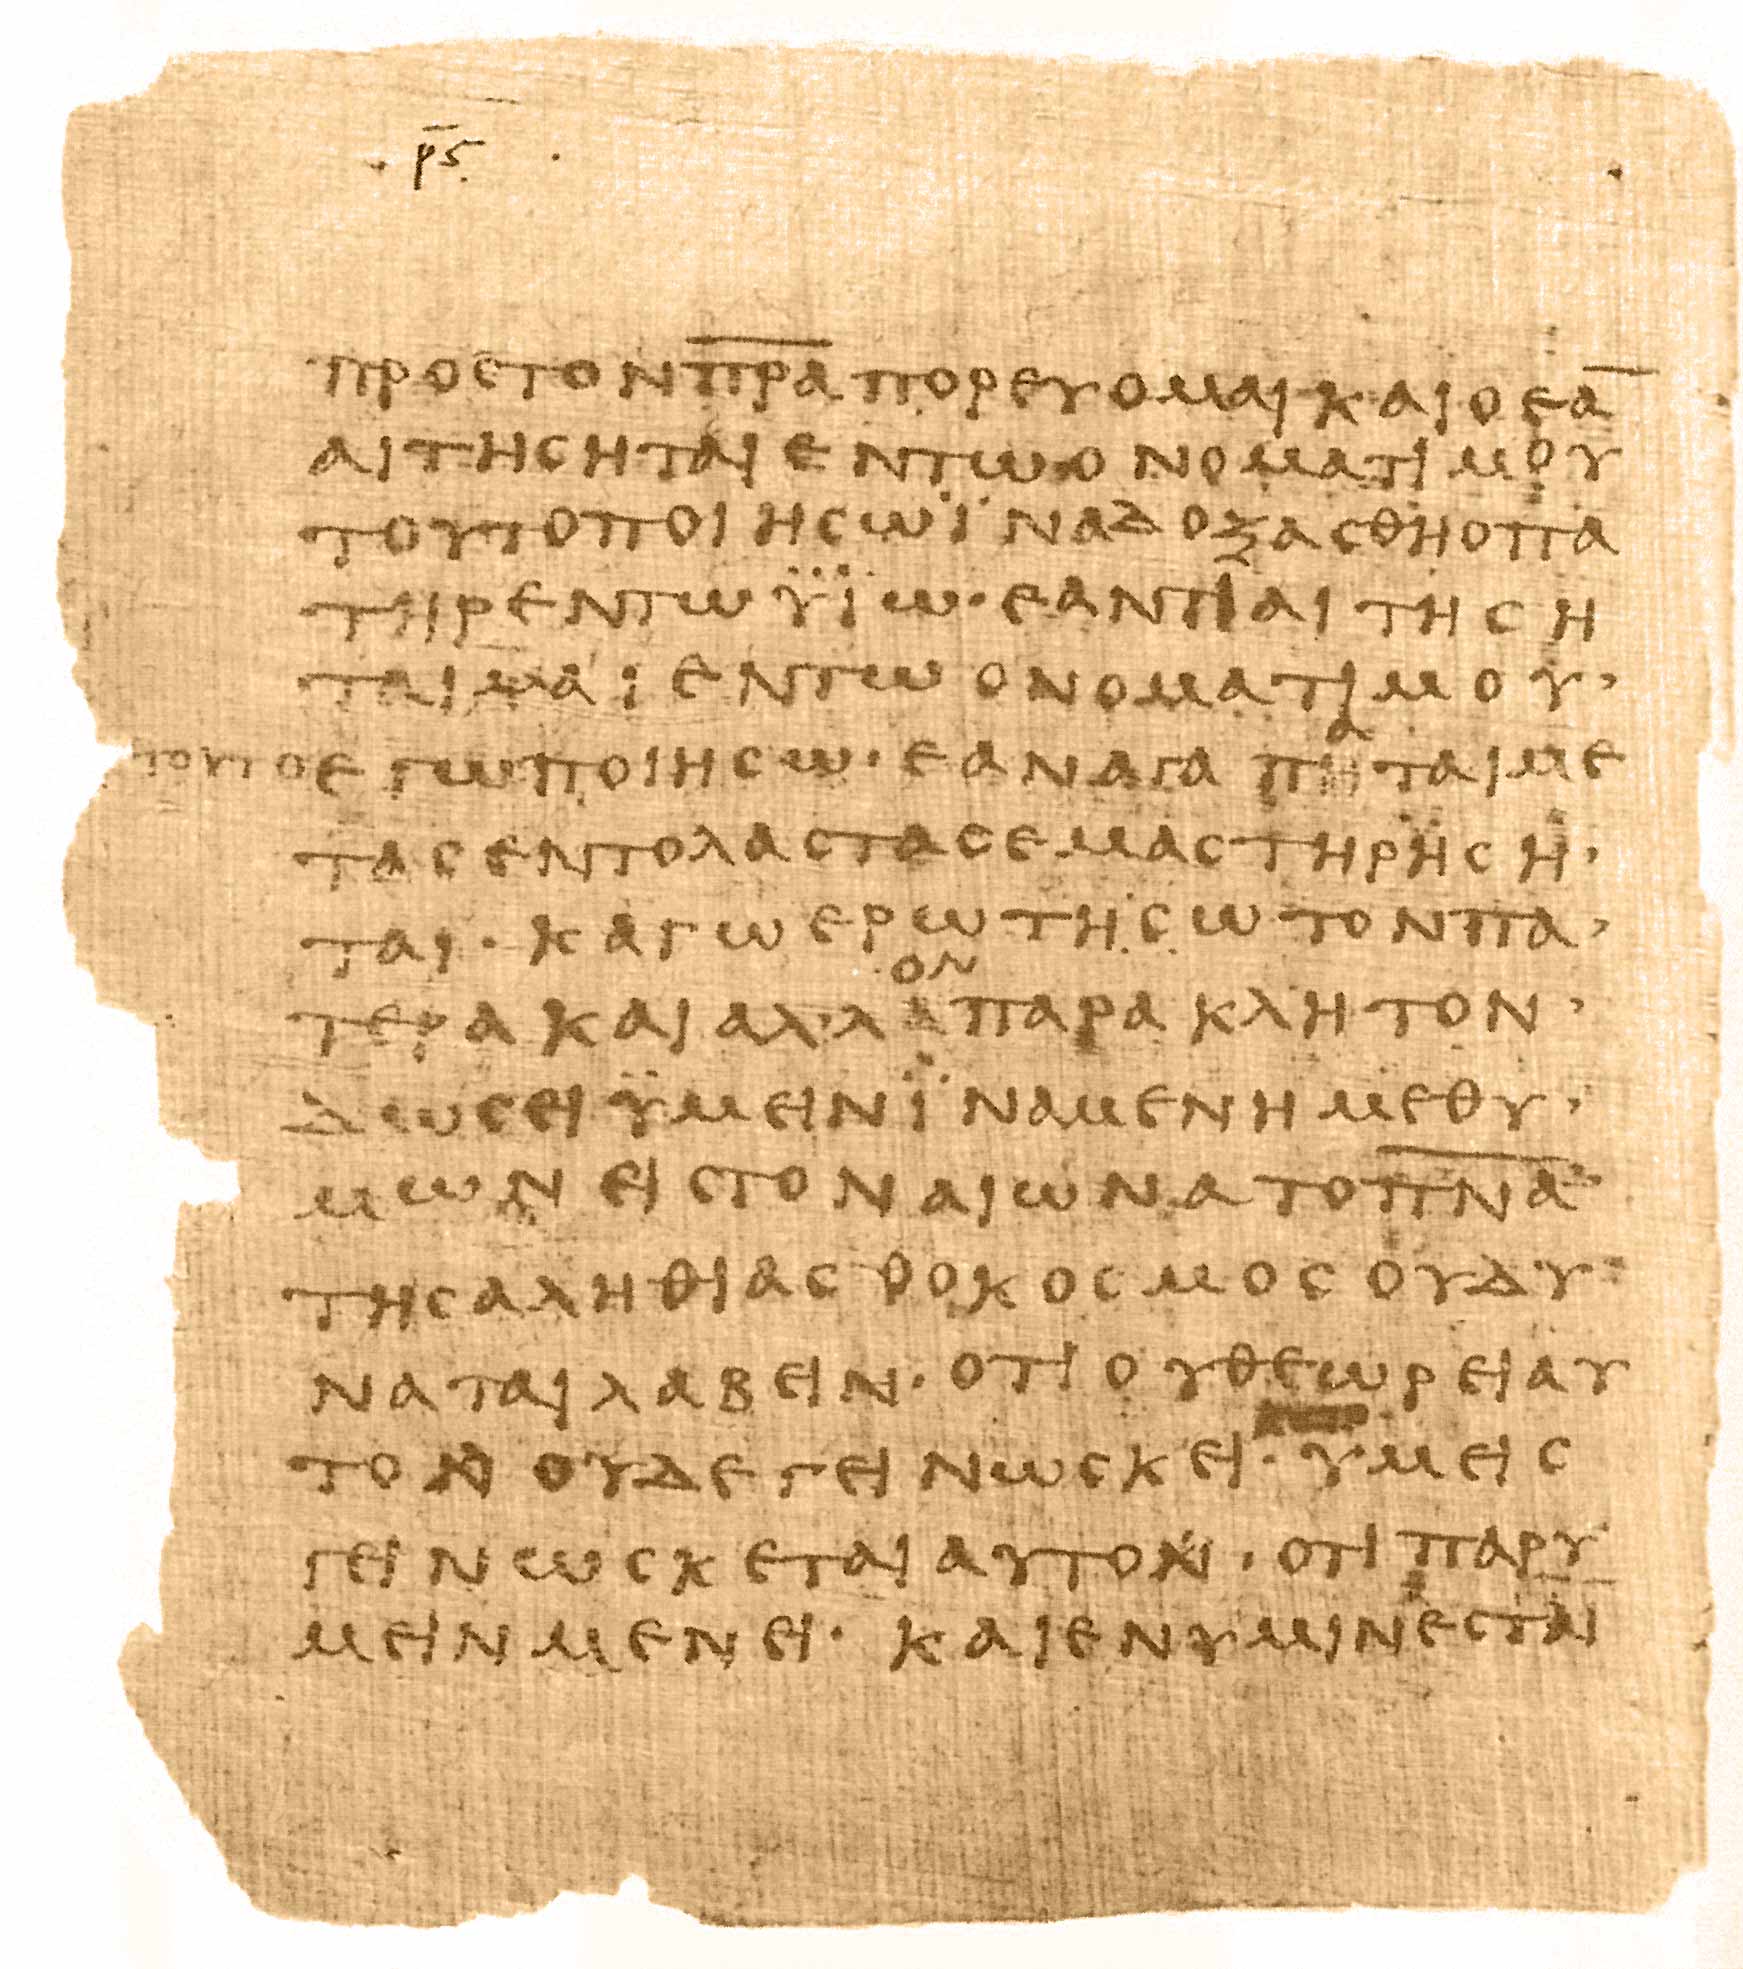 ρ̅ϛ
προςτονπ̅ρ̅α̅πορευομαικαιοεα̅
αιτηςηταιεντωονοματιμου
τουτοποιηςωϊναδοξαςθηοπα
τηρεντωϋϊω·εαντιαιτηςη
ταιμαιεντωονοματιμου·
τουτοεγωποιηςω·εαναγαπηαταιμε
ταςεντολαςταςεμαςτηρηςη·
ται·καγωερωτηςωτονπα·
τερακαιαλλαονπαρακλητον·
δωςειϋμεινϊναμενημεθυ·
μωνειςτοναιωνατοπ̅ν̅α̅
τηςαληθιαςοοκοςμοςουδυ
ναταιλαβειν·οτιουθεωρειαυ
τονουδεγεινωςκει·υμεις
γεινωςκεταιαυτον·οτιπαρυ
μεινμενει·καιενυμινεσται